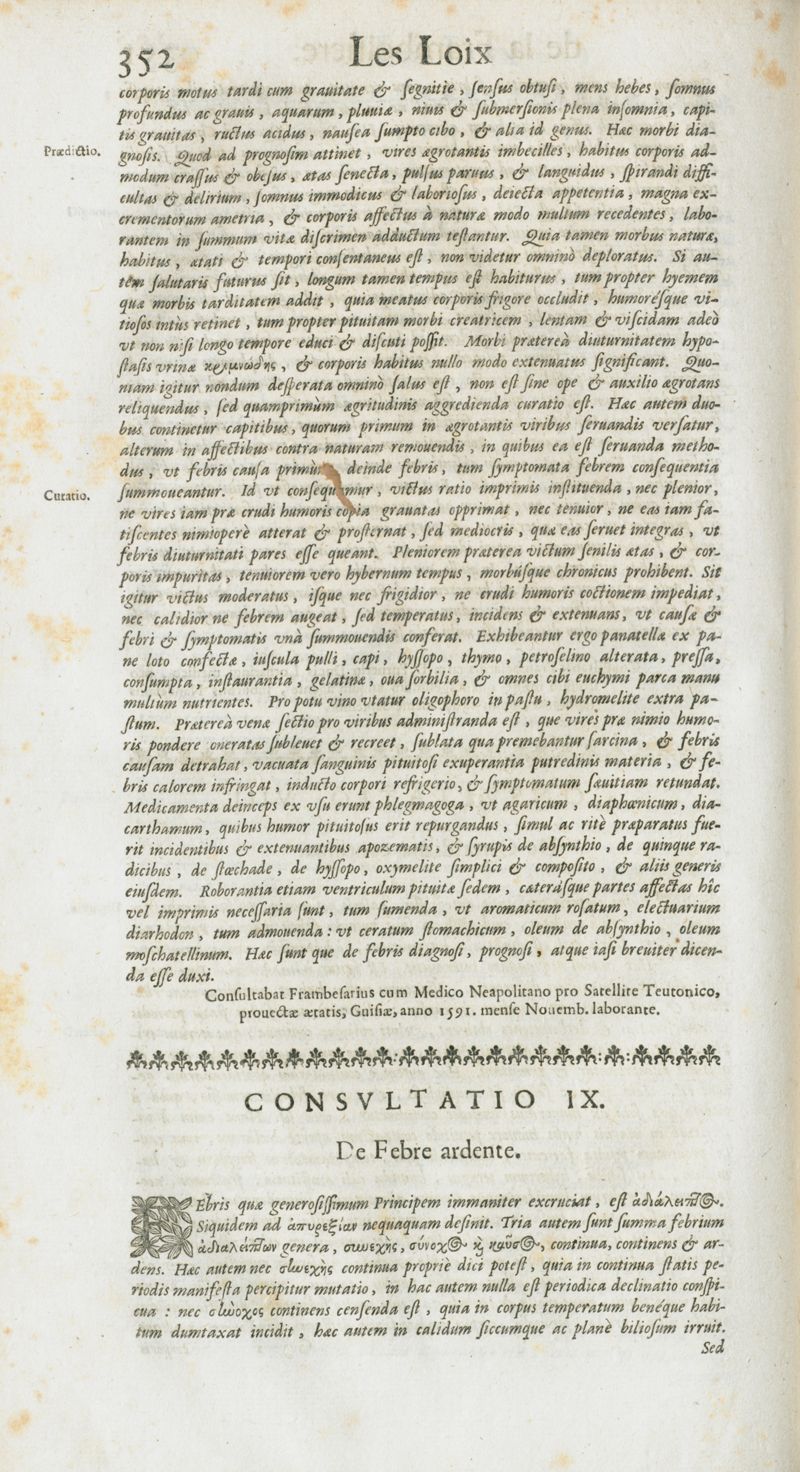 352 Les Loix
corporis motus tardi cum grauitate & ſegnitie, ſenſus obtuſi, mens hebes, ſomnus
profundus ac grauis, aquarum, pluuiæ, niuis & ſubmerſionis plena inſomnia, capi-
tis grauitas, ructus acidus, nauſea ſumpto cibo, & alia id genus. Hæc morbi dia-
Prædictio.
gnoſis. Quod ad prognoſim attinet, vires ægrotantis imbecilles, habitus corporis ad-
modum craſſus & obeſus, ætas ſenecta, pulſus paruus, & languidus, ſpirandi diffi-
cultas & delirium, ſomnus immodicus & laborioſus, deiecta appetentia, magna ex-
crementorum ametria, & corporis affectus à naturæ modo multum recedentes, labo-
rantem in ſummum vitæ diſcrimen adductum teſtantur. Quia tamen morbus naturæ,
habitus, ætati & tempori conſentaneus eſt, non videtur omninò deploratus. Si au-
tem ſalutaris futurus ſit, longum tamen tempus eſt habiturus, tum propter hyemem
quæ morbis tarditatem addit, quia meatus corporis frigore occludit, humoréſque vi-
tioſos intùs retinet, tum propter pituitam morbi creatricem, lentam & viſcidam adeò
vt non niſi longo tempore educi & diſcuti poſſit. Morbi prætereà diuturnitatem hypo-
ſtaſis vrinæ κριμνώδης, & corporis habitus nullo modo extenuatus ſignificant. Quo-
niam igitur nondum deſperata omninò ſalus eſt, non eſt ſine ope & auxilio ægrotans
reliquendus, ſed quamprimùm ægritudinis aggredienda curatio eſt. Hæc autem duo-
bus continetur capitibus, quorum primum in ægrotantis viribus ſeruandis verſatur,
alterum in affectibus contra naturam remouendis, in quibus ea eſt ſeruanda metho-
dus, vt febris cauſa primùm deinde febris, tum ſymptomata febrem conſequentia
Curatio.
ſummoueantur. Id vt conſequamur, victus ratio imprimis inſtituenda, nec plenior,
ne vires iam præ crudi humoris copia grauatas opprimat, nec tenuior, ne eas iam fa-
tiſcentes nimioperè atterat & proſternat, ſed mediocris, quæ eas ſeruet integras, vt
febris diuturnitati pares eſſe queant. Pleniorem præterea victum ſenilis ætas, & cor-
poris impuritas, tenuiorem vero hybernum tempus, morbúſque chronicus prohibent. Sit
igitur victus moderatus, iſque nec frigidior, ne crudi humoris coctionem impediat,
nec calidior ne febrem augeat, ſed temperatus, incidens & extenuans, vt cauſæ &
febri & ſymptomatis vnà ſummouendis conferat. Exhibeantur ergo panatellæ ex pa-
ne loto confectæ, iuſcula pulli, capi, hyſſopo, thymo, petroſelino alterata, preſſa,
conſumpta, inſtaurantia, gelatinæ, oua ſorbilia, & omnes cibi euchymi parca manu
multùm nutrientes. Pro potu vino vtatur oligophoro in paſtu, hydromelite extra pa-
ſtum. Prætereà venæ ſectio pro viribus adminiſtranda eſt, que vires præ nimio humo-
ris pondere oneratas ſubleuet & recreet, ſublata qua premebantur ſarcina, & febris
cauſam detrahat, vacuata ſanguinis pituitoſi exuperantia putredinis materia, & fe-
bris calorem infringat, inducto corpori refrigerio, & ſymptomatum ſæuitiam retundat.
Medicamenta deinceps ex vſu erunt phlegmagoga, vt agaricum, diaphœnicum, dia-
carthamum, quibus humor pituitoſus erit repurgandus, ſimul ac ritè præparatus fue-
rit incidentibus & extenuantibus apozematis, & ſyrupis de abſynthio, de quinque ra-
dicibus, de ſtœchade, de hyſſopo, oxymelite ſimplici & compoſito, & aliis generis
eiuſdem. Roborantia etiam ventriculum pituitæ ſedem, cæteráſque partes affectas hîc
vel imprimis neceſſaria ſunt, tum ſumenda, vt aromaticum roſatum, electuarium
diarhodon, tum admouenda: vt ceratum ſtomachicum, oleum de abſynthio, oleum
moſchatellinum. Hæc ſunt que de febris diagnoſi, prognoſi, atque iaſi breuiter dicen-
da eſſe duxi.
Conſultabat Frambeſarius cum Medico Neapolitano pro Satellite Teutonico,
prouectæ ætatis, Guiſiæ, anno 1591. menſe Nouemb. laborante.
CONSVLTATIO IX.
De Febre ardente.
FEbris quæ generoſiſſimum Principem immaniter excruciat, eſt ἀδιάλειπτος.
Siquidem ad ἀπυρεξίαν nequaquam deſinit. Tria autem ſunt ſumma febrium
ἀδιαλείπτων genera, συνεχὴς, σύνοχος καὶ καῦσος, continua, continens & ar-
dens. Hæc autem nec συνεχὴς continua propriè dici poteſt, quia in continua ſtatis pe-
riodis manifeſta percipitur mutatio, in hac autem nulla eſt periodica declinatio conſpi-
cua: nec σύνοχος continens cenſenda eſt, quia in corpus temperatum benéque habi-
tum dumtaxat incidit, hæc autem in calidum ſiccumque ac planè bilioſum irruit.
Sed